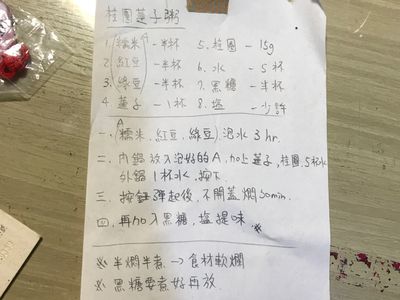 桂圓蓮子粥
1. 糯米 A -半杯 5. 桂圓 - 15g
2. 紅豆 -半杯 6. 水 - 5杯
3. 綠豆 -半杯 7. 黑糖 - 半杯
4. 蓮子 - 1杯 8. 鹽 - 少許
A
一. (糯米. 紅豆. 綠豆). 泡水 3 hr.
二. 內鍋放入泡好的A, 加上蓮子, 桂圓. 5杯水
外鍋 1杯水, 按下.
三. 按鈕彈起後, 不開蓋燜 30min.
四. 再加入黑糖, 鹽提味. ※
※ 半燜半煮 → 食材軟爛
※ 黑糖要煮好再放.